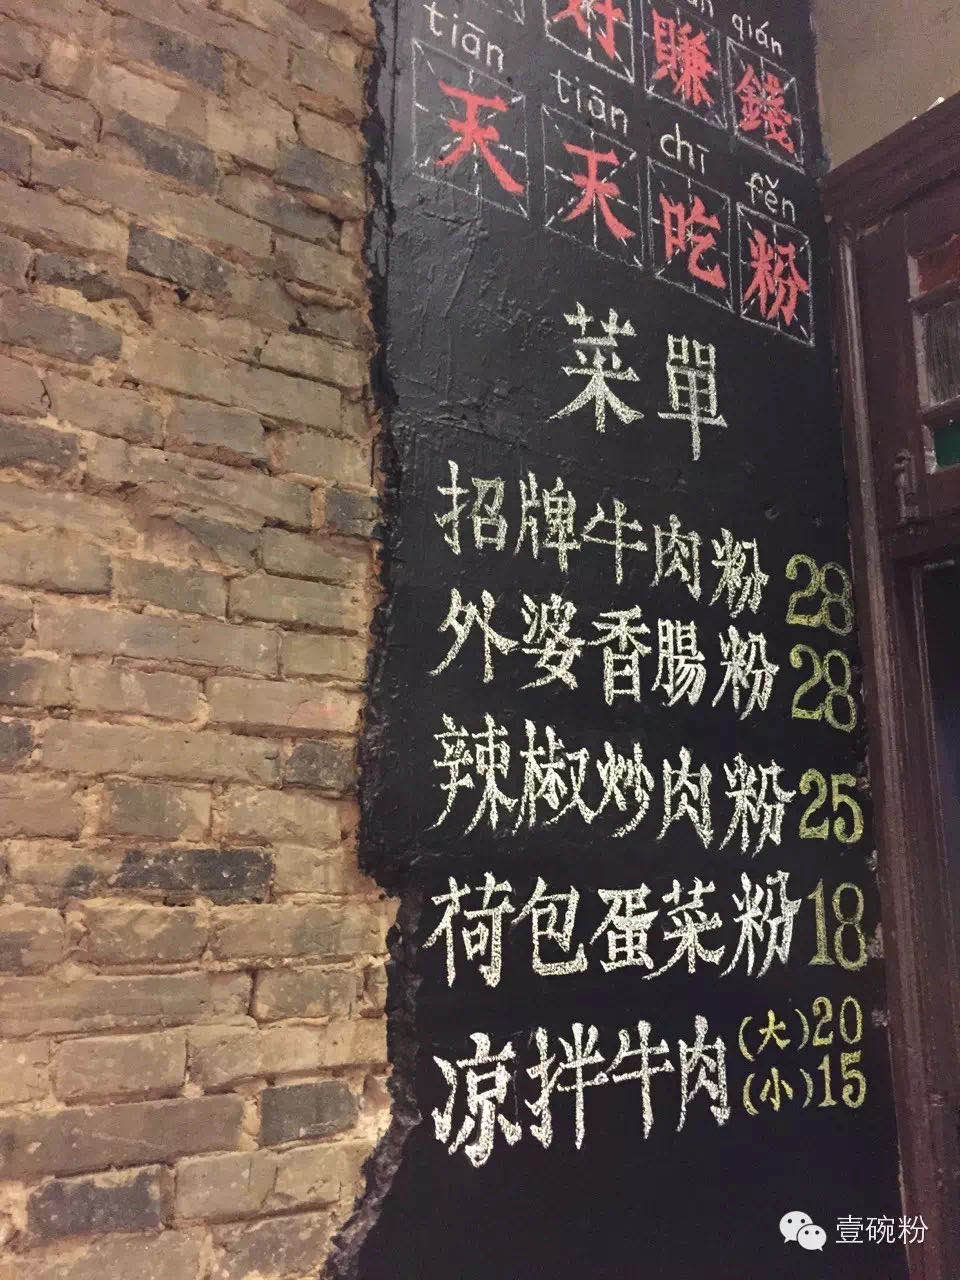 qián
好賺錢
tiān tiān chī fěn
天天吃粉
菜單
招牌牛肉粉 28
外婆香腸粉 28
辣椒炒肉粉 25
荷包蛋菜粉 18
凉拌牛肉 (大)20
(小)15
壹碗粉